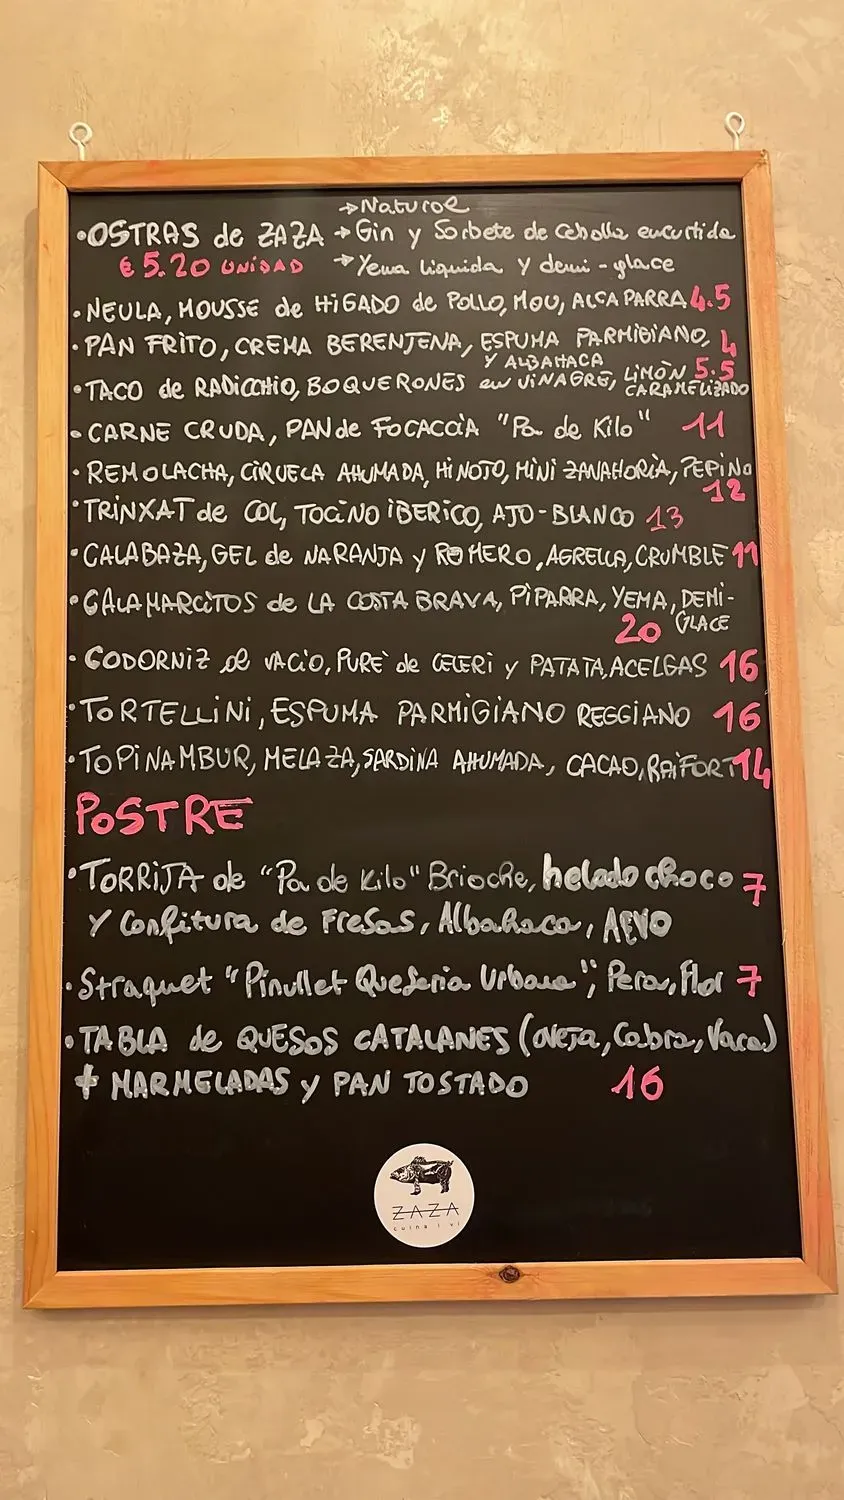 → Natural
• OSTRAS de ZAZA → Gin y Sorbete de Cebolla encurtida
€ 5.20 UNIDAD → Yema Liquida y demi-glace
• NEULA, MOUSSE de HIGADO de POLLO, MOU, ALCAPARRA 4.5
• PAN FRITO, CREMA BERENJENA, ESPUMA PARMIGIANO, 4
Y ALBAHACA
• TACO de RADICCHIO, BOQUERONES en VINAGRE, LIMÒN 5.5
CARAMELIZADO
• CARNE CRUDA, PAN de FOCACCIA "Pa de Kilo" 11
• REMOLACHA, CIRUELA AHUMADA, HINOJO, MINI ZANAHORIA, PEPINO
12
• TRINXAT de COL, TOCINO IBERICO, AJO-BLANCO 13
• CALABAZA, GEL de NARANJA y ROMERO, AGRELLA, CRUMBLE 11
• CALAMARCITOS de LA COSTA BRAVA, PIPARRA, YEMA, DEMI-
20 GLACE
• CODORNIZ al VACIO, PURÈ de CELERI y PATATA, ACELGAS 16
• TORTELLINI, ESPUMA PARMIGIANO REGGIANO 16
• TOPINAMBUR, MELAZA, SARDINA AHUMADA, CACAO, RAIFORT 14
POSTRE
• TORRIJA de "Pa de Kilo" Brioche, helado choco 7
Y Confitura de Fresas, Albahaca, AEVO
• Straquet "Pinullet Queseria Urbana", Pera, Flor 7
• TABLA de QUESOS CATALANES (OVEJA, Cabra, Vaca)
+ MARMELADAS y PAN TOSTADO 16
ZAZA
cuina i vi